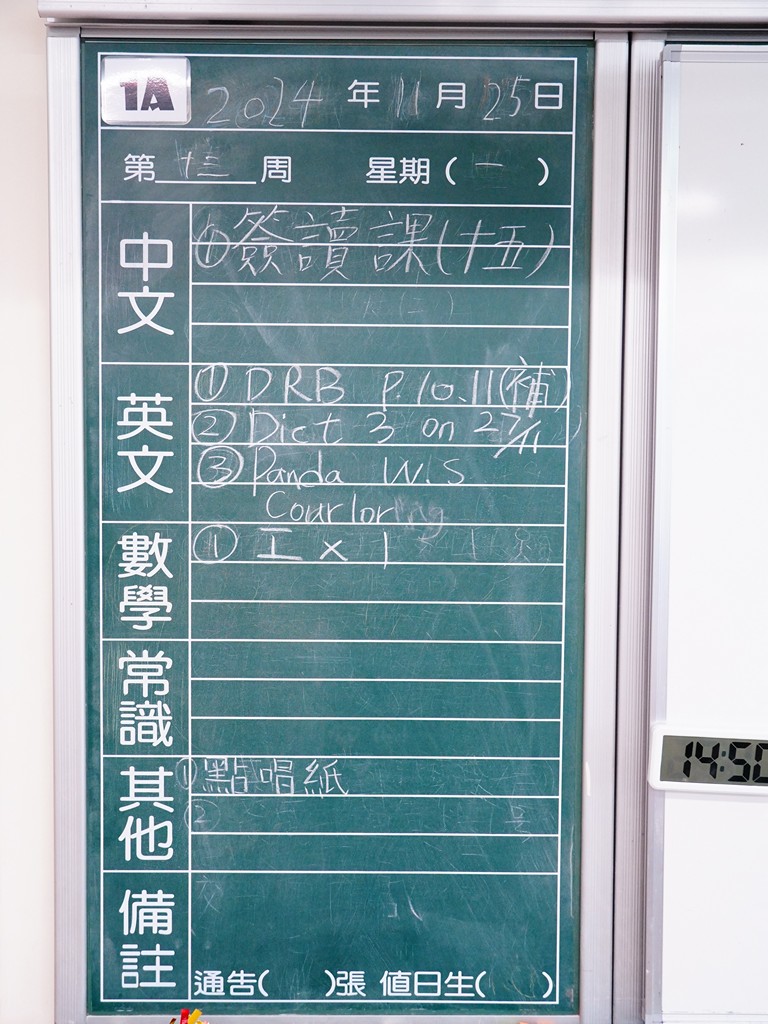 1A 2024 年 11 月 25 日
第 十三 周 星期( 一 )
中文
①簽讀課(十五)
英文
① DRB P.10.11(補)
② Dict 3 on 27/11
③ Panda W.S
Courloring
數學
① 工 × 1
常識
其他
①點唱紙
②
備註
通告( )張 值日生( )
14:50